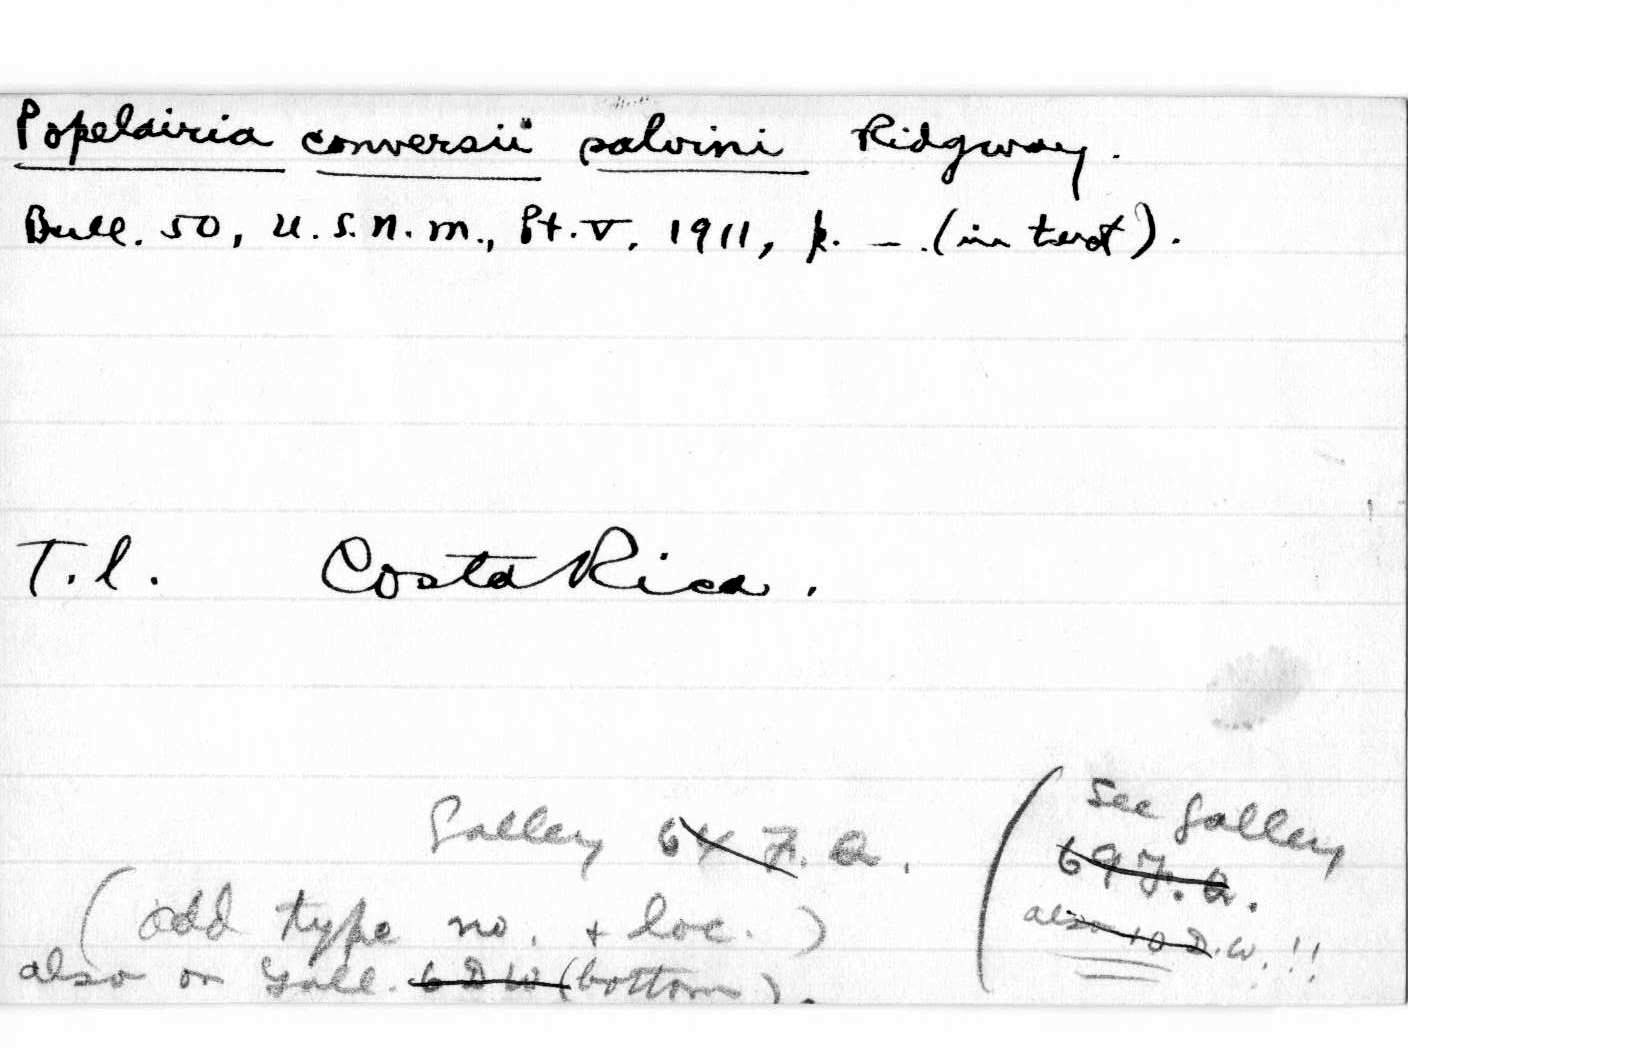 Popelairia conversii salvini Ridgway.
Bull. 50, U.S.N.M., Pt. V, 1911, p. — . (in text).
T.l. Costa Rica.
Galley 64 F. Q.
(add type no. + loc.)
also on Gall. 6 D W (bottom).
(See Galley
69 F. Q.
also 10 D.W.!!